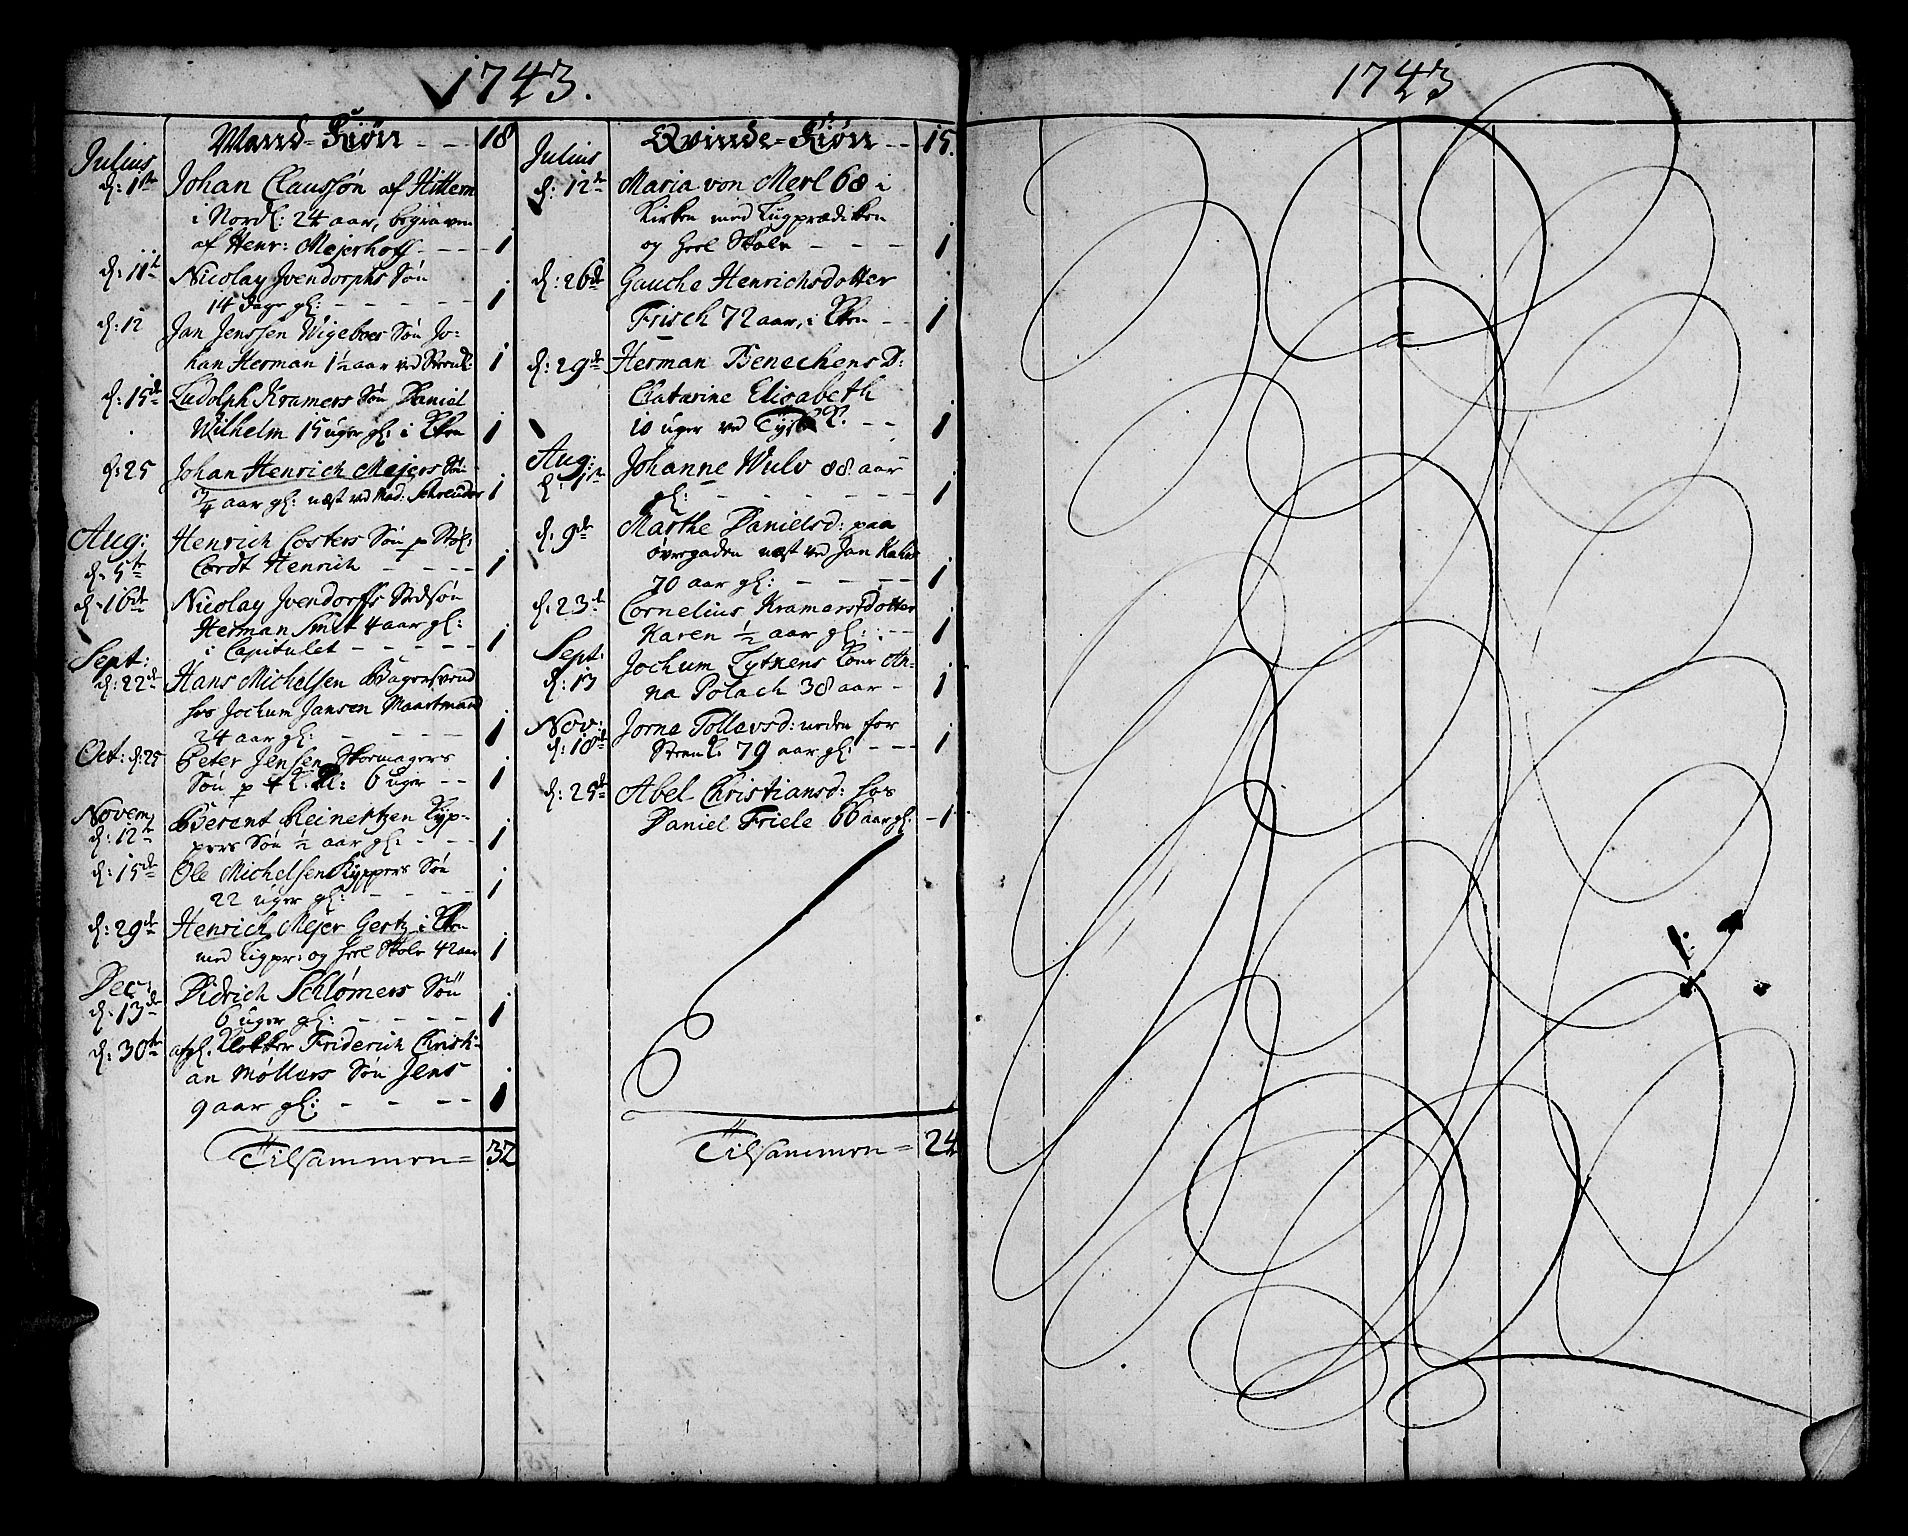 1743.
Mand-Kiøn - - 18
Julius
d: 1ste Johan Claussøn af Hittern
i Nordl: 24 aar, begraven
af Henr: Mejerhoff - - - 1
d: 11te Nicolay Jvendorphs Søn
14 dage gl: - - - - - 1
d: 12 Jan Jenssen Wigeboes Søn Jo-
han Herman 1½ aar ved Strendl: 1
d: 15de Ludolph Kramers Søn Daniel
Wilhelm 15 uger gl: i Kken 1
d: 25 Johan Henrich Mejers Søn
¾ aar gl: næst ved Mad: Schreuder 1
Aug: Henrich Costers Søn p Støl:
d: 5te Cordt Henrich - - - - 1
d: 16de Nicolay Jvendorffs Stedsøn
Herman Smit 4 aar gl:
i Capitulet - - - - - 1
Sept:
d: 22de Hans Michelsen Bagersvend
hos Jochum Jansen Maartmand
24 aar gl: - - - - 1
Oct: d: 25 Peter Jensen Skomagers
Søn p 6 uger - - 1
Novem Berent Reinertzen Kyp-
d: 12te pers Søn ½ aar gl: - - - 1
d: 15de Ole Michelsen Kyppers Søn
22 uger gl: - - - - 1
d: 29de Henrich Mejer Gertz i Kken
med Ligpr: og heel Skole 42 aar 1
Dec: Didrich Schlømers Søn
d: 13de 6 uger gl: - - - - - 1
d: 30te afgl. Klokker Friderich Christi-
an Møllers Søn Jens
9 aar gl: - - - - - 1
Tilsammen = 32
Qvinde-Kiøn - - 15.
Julius
d: 12te Maria von Merl 68 i
Kirken med Ligprædiken
og heel Skole - - - 1
d: 26de Gauche Henrichsdotter
Frisch 72 aar, i Kken - - 1
d: 29de Herman Benechens D:
Catarine Elisabeth
10 uger ved Tyske K. - - 1
Aug: Johanne Wulv 88 aar
d: 1ste gl: - - - - - - 1
d: 9de Marthe Danielsd: paa
Øvergaden næst ved Jan Kahrs
70 aar gl: - - - - 1
d: 23de Cornelius Kramers Dotter
Karen ½ aar gl: - - 1
Sept: Jochum Lytkens Kone An-
d: 13 na Polach 38 aar - 1
Nov: Jorna Tollevsd: neden for
d: 18de Strendl: 79 aar gl: - - - 1
d: 25de Abel Christiansd: hos
Daniel Friele 66 aar gl: - 1
Tilsammen = 24
1743